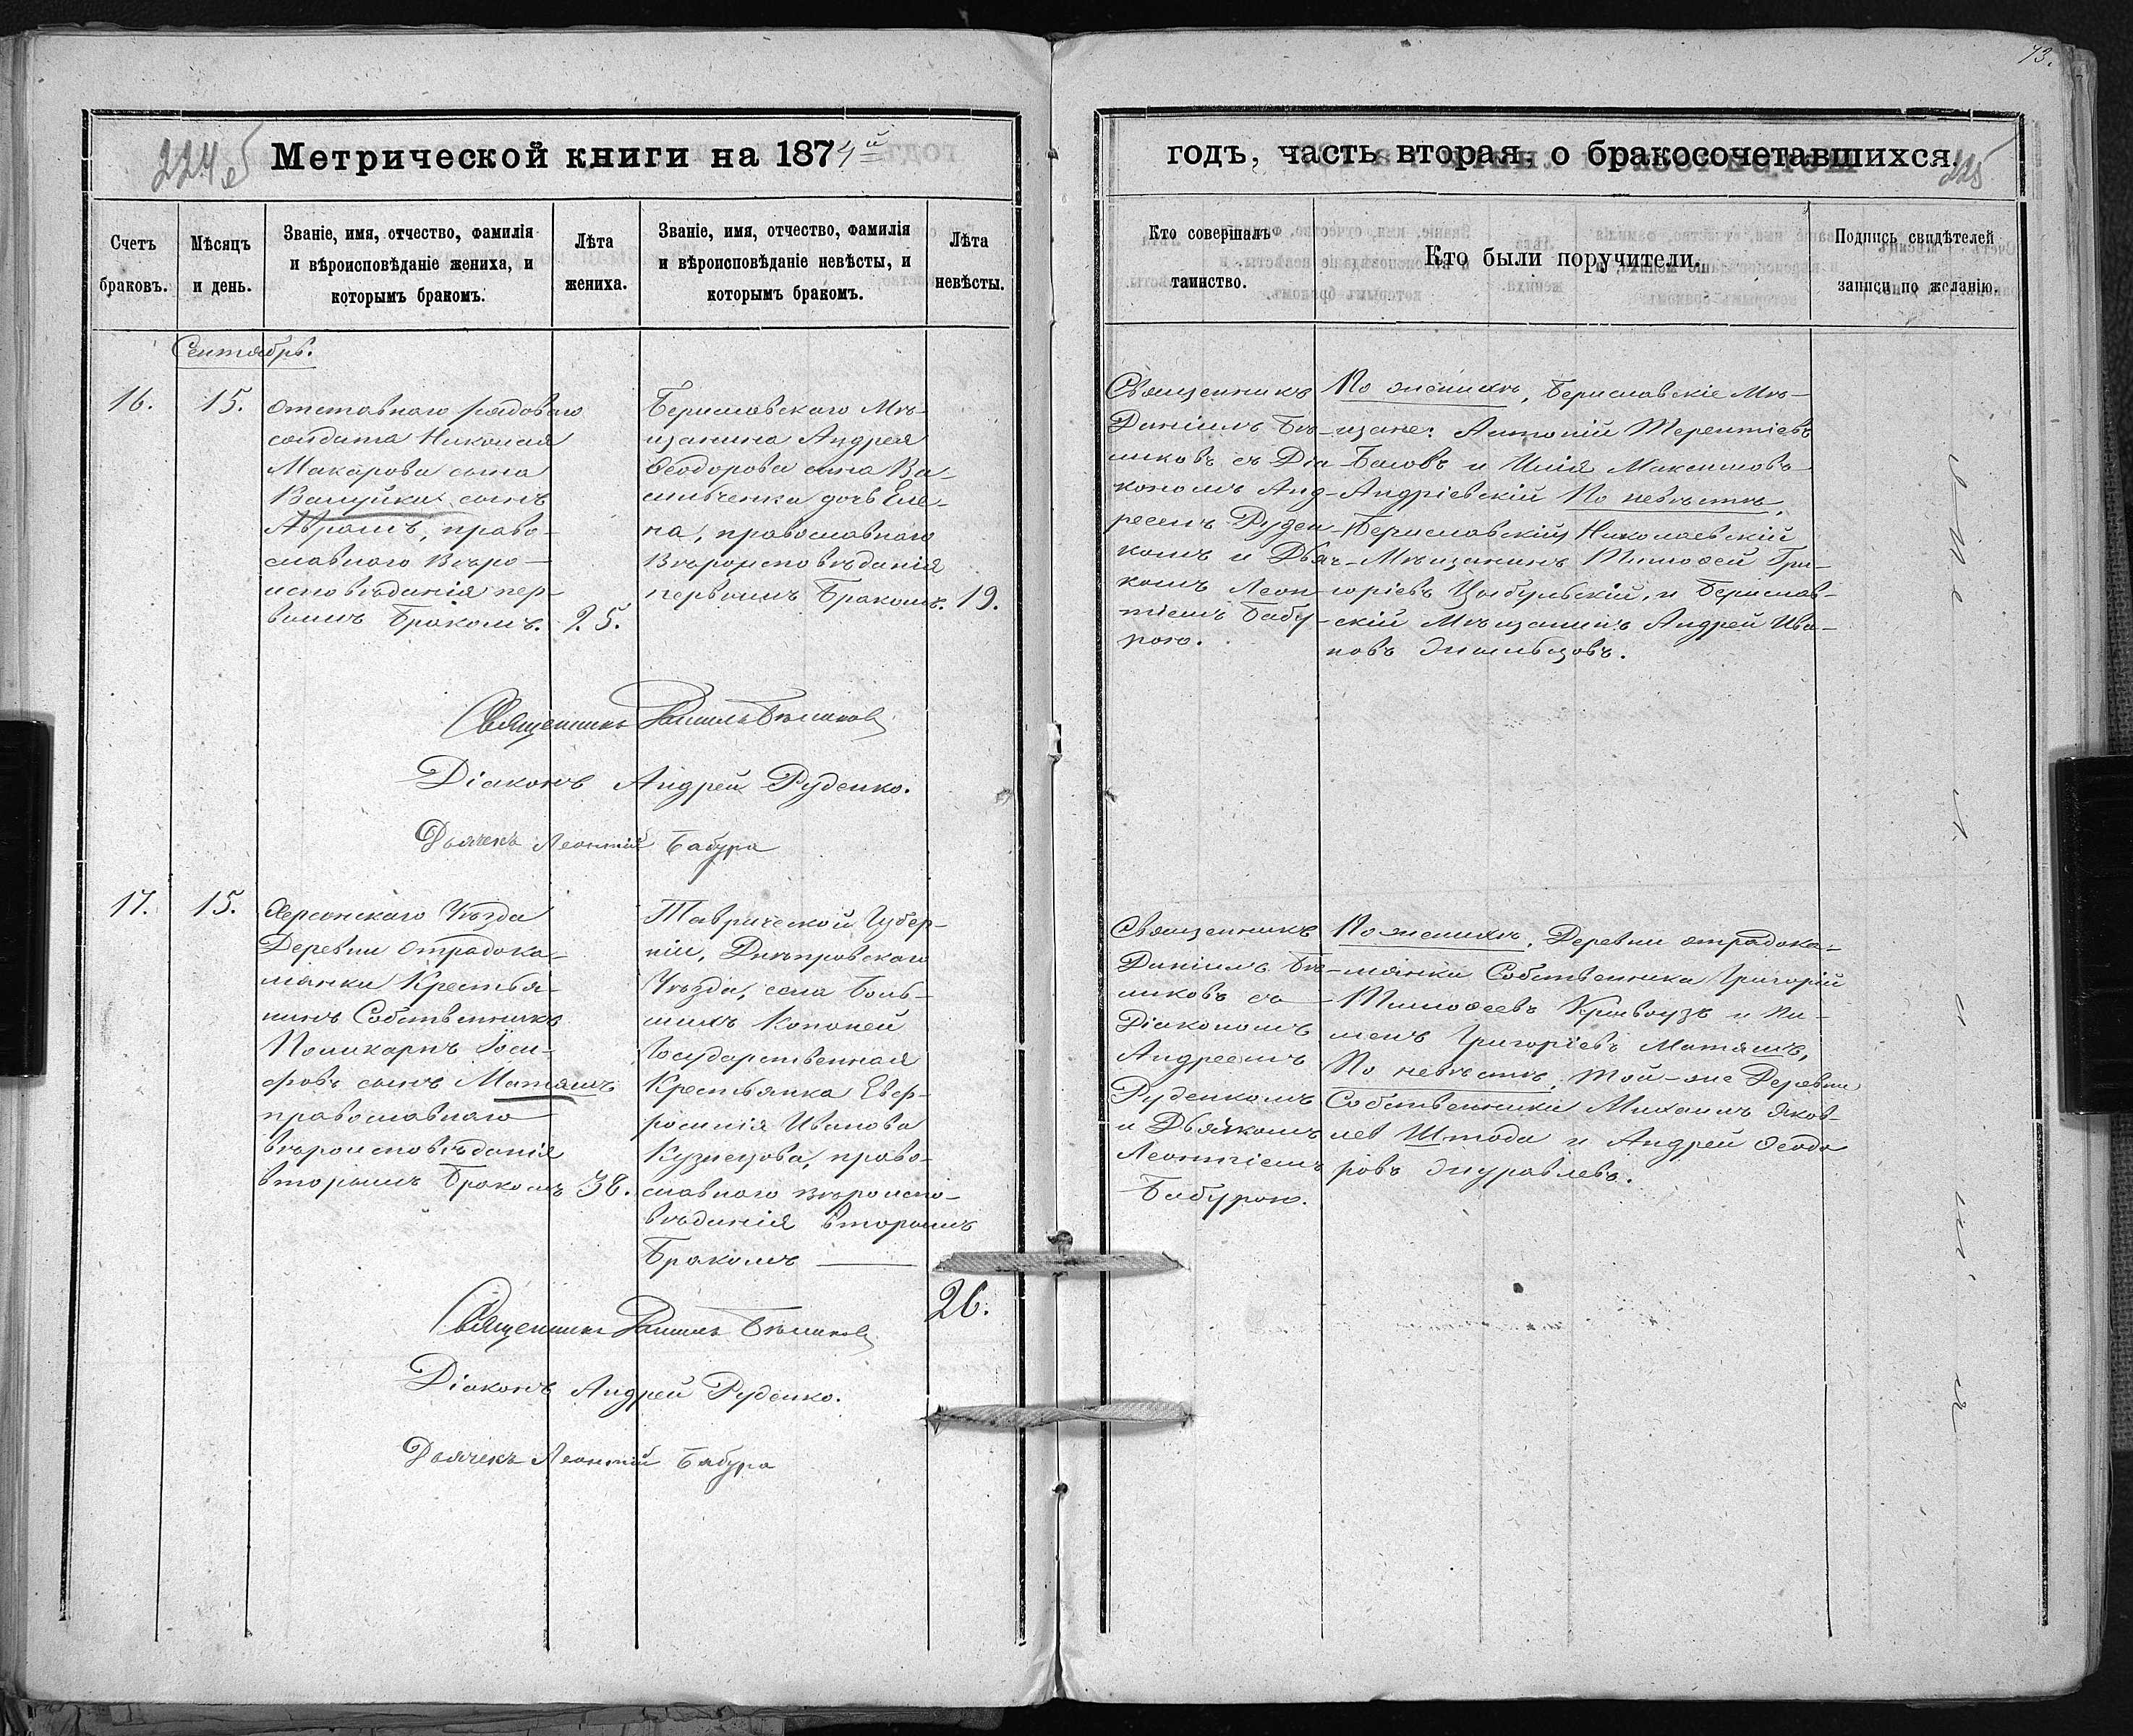 73.
224 об
Метрической книги на 1874й
годъ, часть вторая, о бракосочетавшихся.
225
Счетъ браковъ.
Мѣсяцъ и день.
Званіе, имя, отчество, фамилія
и вѣроисповѣданіе жениха, и
которымъ бракомъ.
Лѣта жениха.
Званіе, имя, отчество, фамилія
и вѣроисповѣданіе невѣсты, и
которымъ бракомъ.
Лѣта невѣсты.
Кто совершалъ
таинство.
Кто были поручители.
Подпись свидѣтелей
записи по желанію.
Сентябрь.
16.
15.
Отставнаго рядоваго
солдата Николая
Макарова сына
Валуйки сынъ
Абрамъ, право-
славнаго вѣро-
исповѣданія пер-
вымъ бракомъ.
25.
Бериславскаго Мѣ-
щанина Андрея
Ѳеодорова сына Ва-
сильченка дочь Еле-
на, православнаго
вѣроисповѣданія
первымъ бракомъ.
19.
Священникъ
Даніилъ Бѣ-
ликовъ съ Діа-
кономъ Анд-
реемъ Руден-
комъ и Дьяч-
комъ Леон-
тіемъ Бабу-
рою.
По женихѣ, Бериславскіе Мѣ-
щане: Антоній Терентіевъ
Басовъ и Илія Максимовъ
Андріевскій По невѣстѣ,
Бериславскій Николаевскій
Мѣщанинъ Тимоѳей Гри-
горіевъ Цыбульскій, и Берислав-
скій Мѣщанинъ Андрей Ива-
новъ
Священникъ Даніилъ Бѣликовъ
Діаконъ Андрей Руденко.
Дьячекъ Леонтій Бабура
17.
15.
Херсонскаго Уѣзда
Деревни Отрадока-
мянки Крестья-
нинъ Собственникъ
Поликарпъ Іоси-
фовъ сынъ Матяшъ
православнаго
вѣроисповѣданія
вторымъ бракомъ
38.
Таврической Губер-
ніи, Днѣпровскаго
Уѣзда, села Боль-
шихъ Копоней
Государственная
Крестьянка Евф-
росинія Иванова
Кузнецова, право-
славнаго вѣроиспо-
вѣданія вторымъ
бракомъ
26.
Священникъ
Даніилъ Бѣ-
ликовъ съ
Діакономъ
Андреемъ
Руденкомъ
и Дьячкомъ
Леонтіемъ
Бабурою.
По женихѣ, Деревни Отрадока-
мянки Собственники Григорій
Тимоѳеевъ и Пи-
менъ Григоріевъ Матяшъ,
По невѣстѣ, той-же Деревни
Собственники Михаилъ Яков-
лев Штода и Андрей Ѳеодо
ровъ Журавлевъ.
Священникъ Даніилъ Бѣликовъ
Діаконъ Андрей Руденко.
Дьячекъ Леонтій Бабура